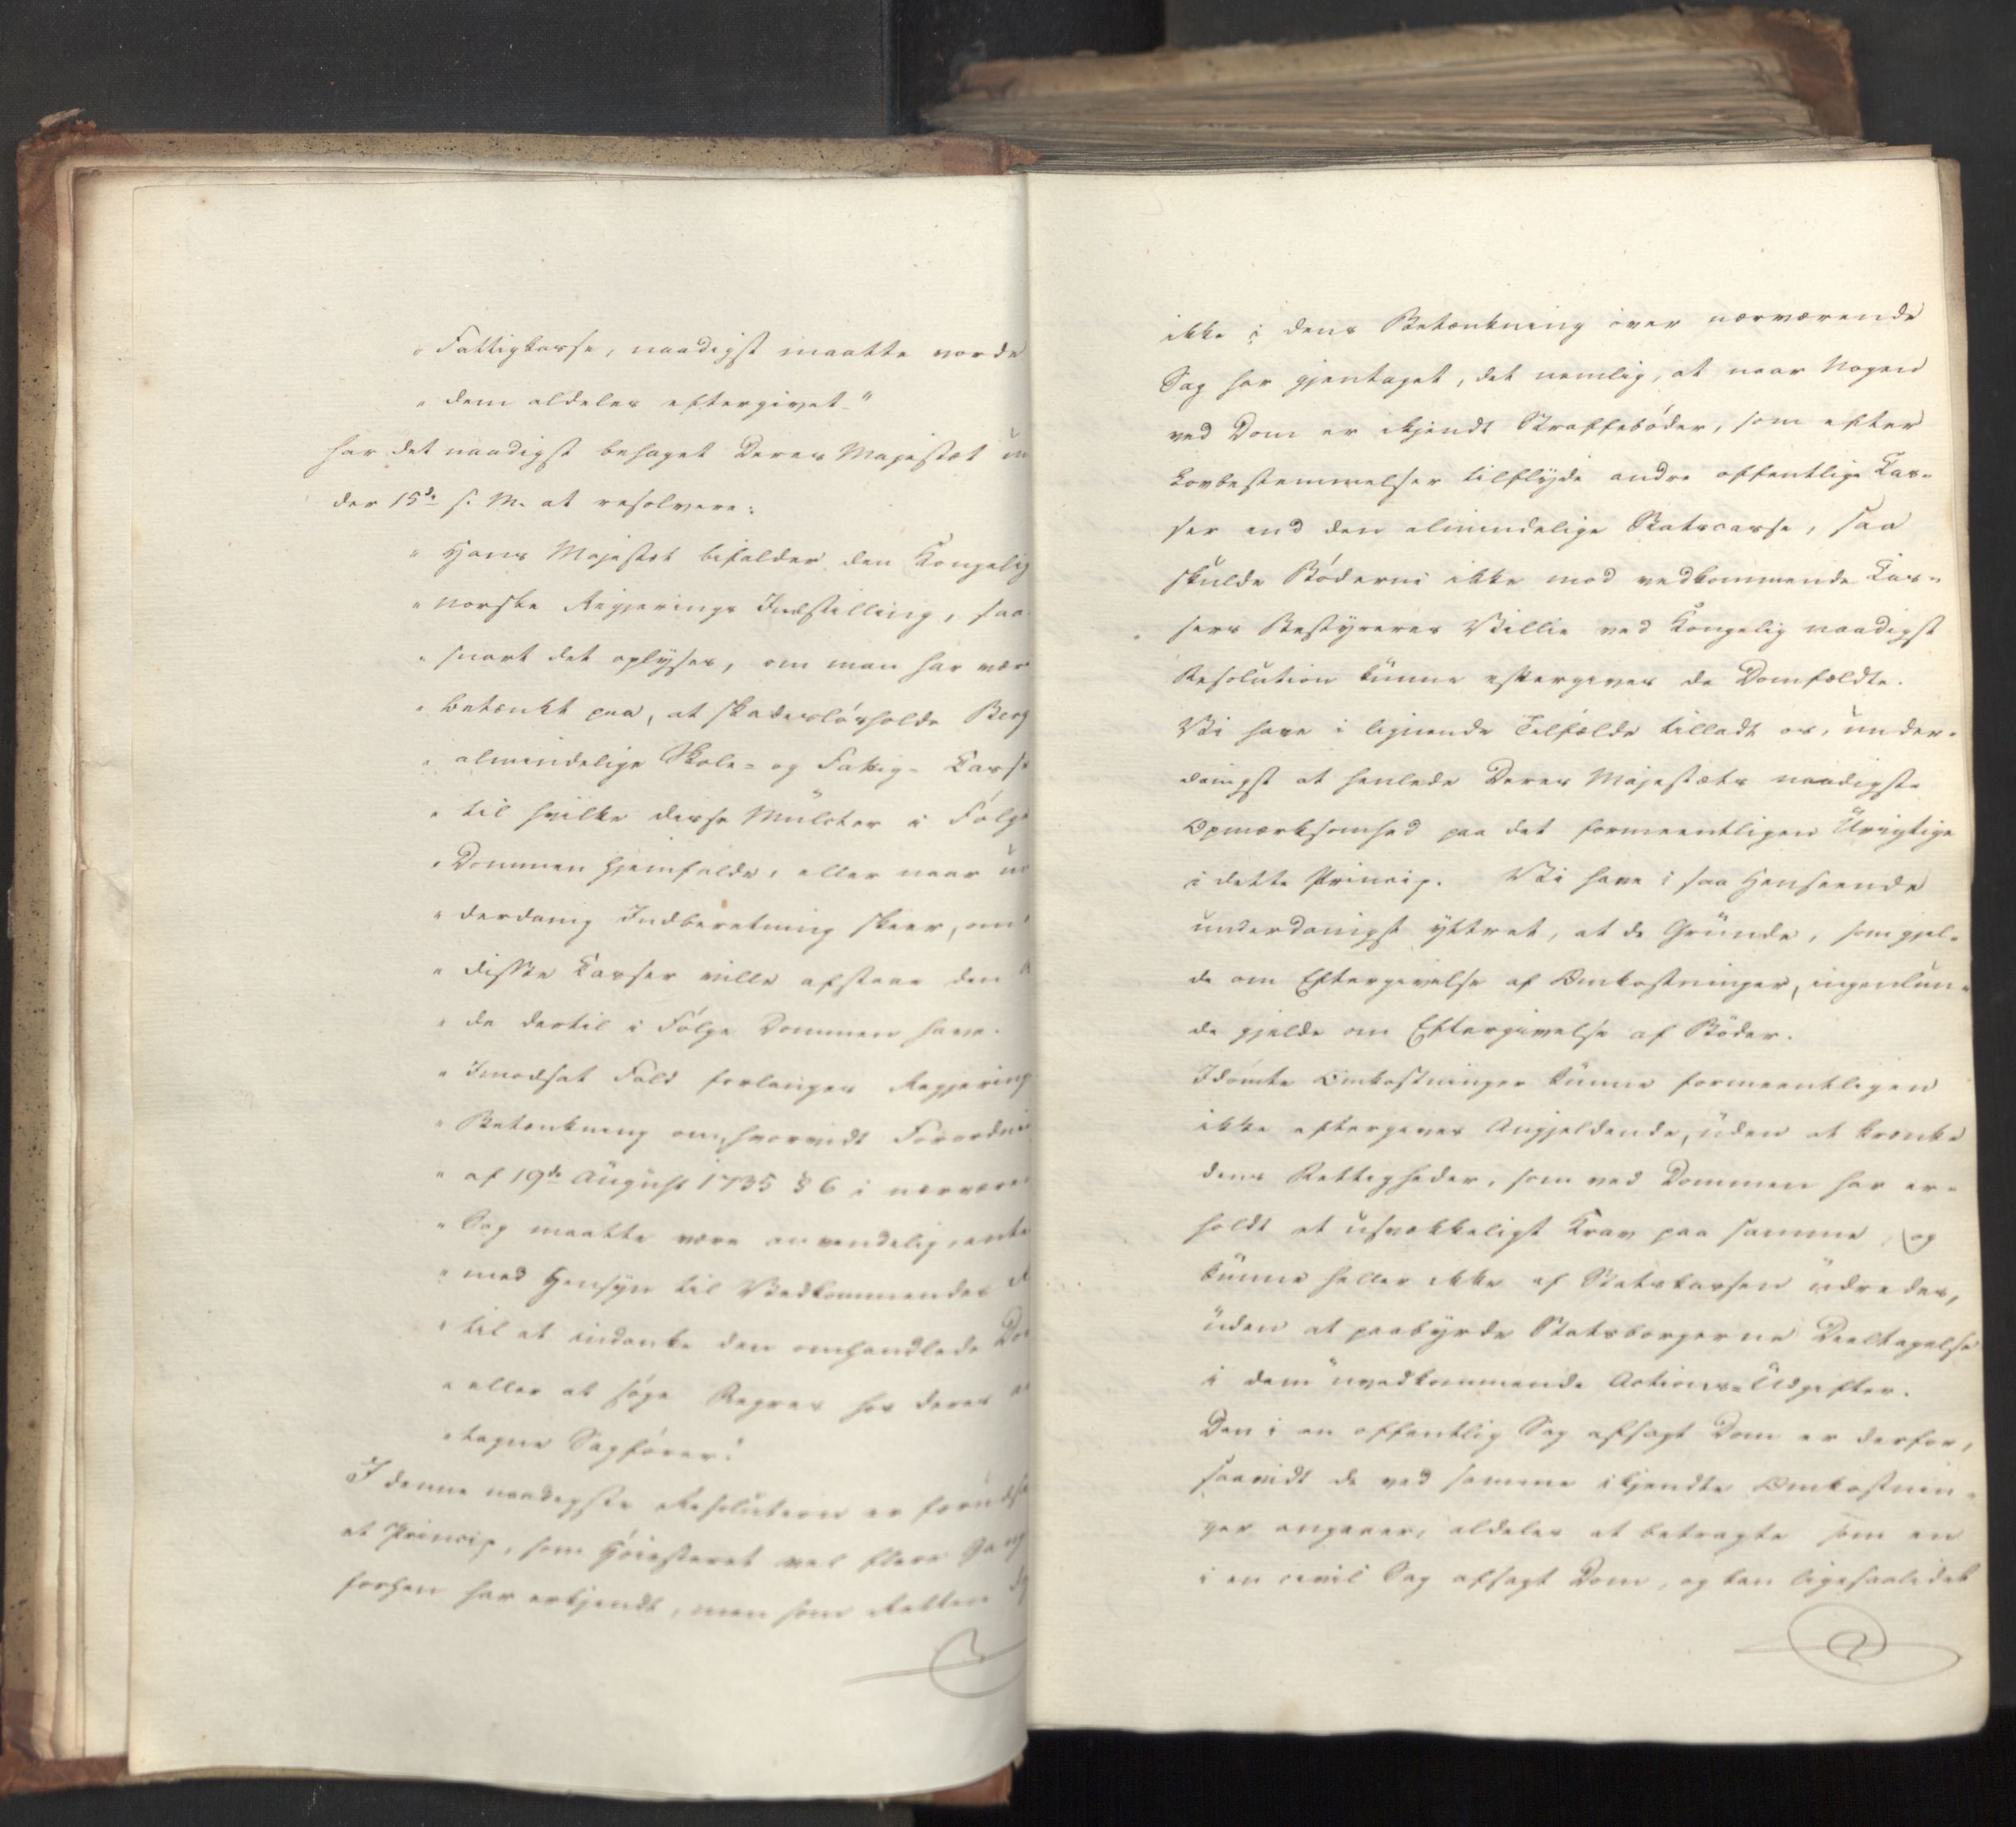 "Fattigkasse, naadigst maatte vorde
"dem aldeles eftergivet."
har det naadigst behaget Deres Majestæt un
der 15de s. M. at resolvere:
"Hans Majestæt bifalder den Kongelig
"norske Regjerings Indstilling, saa
"snart det oplyses, om man har vær
"betænkt paa, at skadesløsholde Berg
"almindelige Skole- og Fattig-Casse
"til hvilke disse Mulcter i Følge
"Dommen hjemfalde, eller naar un
"derdanig Indberetning skeer, om
"disse Casser ville afstaae den
"de dertil i Følge Dommen have.
"I modsat Fald forlanges Regjering
"Betænkning om, hvorvidt Forordnin
"af 19de August 1735 § 6 i nærvære
"Sag maatte være anvendelig, ente
"med Hensyn til Vedkommendes
"til at indanke den omhandlede Do
"eller at søge Regres hos deres
"tagne Sagfører."
I denne naadigste Resolution er foruds
et Princip, som Høiesteret vel flere Gang
forhen har erkjendt, men som Retten
ikke i dens Betænkning over nærværende
Sag har gjentaget, det nemlig, at naar Nogen
ved Dom er ikjendt Straffebøder, som efter
Lovbestemmelser tilflyde andre offentlige Cas-
ser end den almindelige Statscasse, saa
skulde Bøderne ikke mod vedkommende Cas-
sers Bestyreres Villie ved Kongelig naadigst
Resolution kunne eftergives de Domfældte.
Vi have i lignende Tilfælde tilladt os, under-
danigst at henlede Deres Majestæts naadigste
Opmærksomhed paa det formeentligen Urigtige
i dette Princip. Vi have i saa Henseende
underdanigst yttret, at de Grunde, som gjel-
de om Eftergivelse af Omkostninger, ingenlun-
de gjelde om Eftergivelse af Bøder.
Idømte Omkostninger kunne formeentligen
ikke eftergives Angjeldende, uden at krænke
dens Rettigheder, som ved Dommen har er-
holdt et usvækkeligt Krav paa samme, og
kunne heller ikke af Statskassen udredes,
uden at paabyrde Statsborgerne Deeltagelse
i dem uvedkommende Actions-Udgifter.
Den i en offentlig Sag afsagt Dom er derfor,
saavidt de ved samme ikjendte Omkostnin-
ger angaaer, aldeles at betragte som en
i en civil Sag afsagt Dom, og kan ligesaalidet